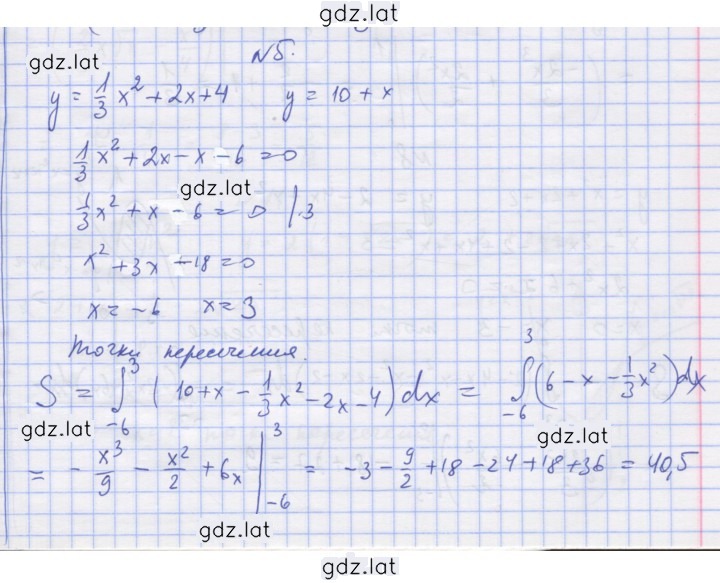 gdz.lat
gdz.lat
№5.
y = 1/3 x² + 2x + 4 y = 10 + x
1/3 x² + 2x - x - 6 = 0
gdz.lat
1/3 x² + x - 6 = 0 |·3
x² + 3x - 18 = 0
x = -6 x = 3
Точки пересечения.
S = ∫₋₆³ (10 + x - 1/3 x² - 2x - 4) dx = ∫₋₆³ (6 - x - 1/3 x²) dx
gdz.lat gdz.lat
= - x³/9 - x²/2 + 6x |₋₆³ = -3 - 9/2 + 18 - 24 + 18 + 36 = 40,5
gdz.lat
gdz.lat